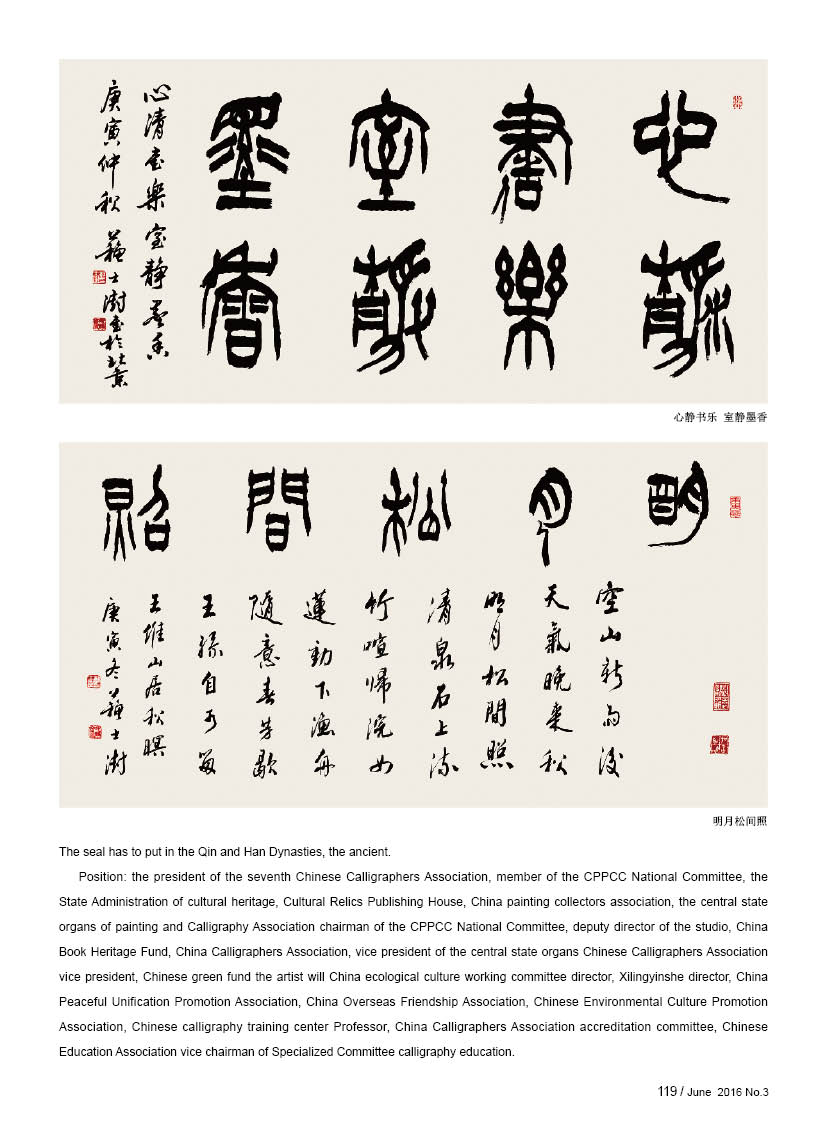 心靜
書樂
室靜
墨香
心清書樂室静墨香
庚寅仲秋蘇士澍書於北京
心静书乐 室静墨香
明月松間照
空山新雨後
天氣晚来秋
明月松間照
清泉石上流
竹喧歸浣女
蓮動下漁舟
隨意春芳歇
王孫自可留
王維山居秋暝
庚寅冬蘇士澍
明月松间照
The seal has to put in the Qin and Han Dynasties, the ancient.
Position: the president of the seventh Chinese Calligraphers Association, member of the CPPCC National Committee, the
State Administration of cultural heritage, Cultural Relics Publishing House, China painting collectors association, the central state
organs of painting and Calligraphy Association chairman of the CPPCC National Committee, deputy director of the studio, China
Book Heritage Fund, China Calligraphers Association, vice president of the central state organs Chinese Calligraphers Association
vice president, Chinese green fund the artist will China ecological culture working committee director, Xilingyinshe director, China
Peaceful Unification Promotion Association, China Overseas Friendship Association, Chinese Environmental Culture Promotion
Association, Chinese calligraphy training center Professor, China Calligraphers Association accreditation committee, Chinese
Education Association vice chairman of Specialized Committee calligraphy education.
119 / June 2016 No.3